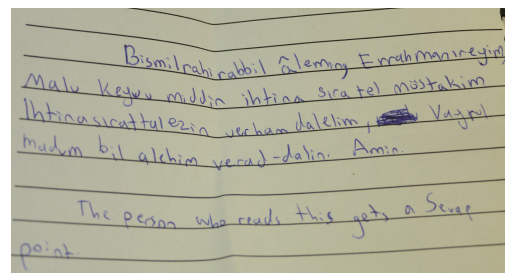 Bismilrahirabbil âleming Errahmanireyim,
Malu keyvu middin ihtina sıratel müstakim
Ihtinasırattulezin verham dalelim, Vagrul
madum bil alehim verad-dalin. Amin.
The person who reads this gets a Sevap
point.